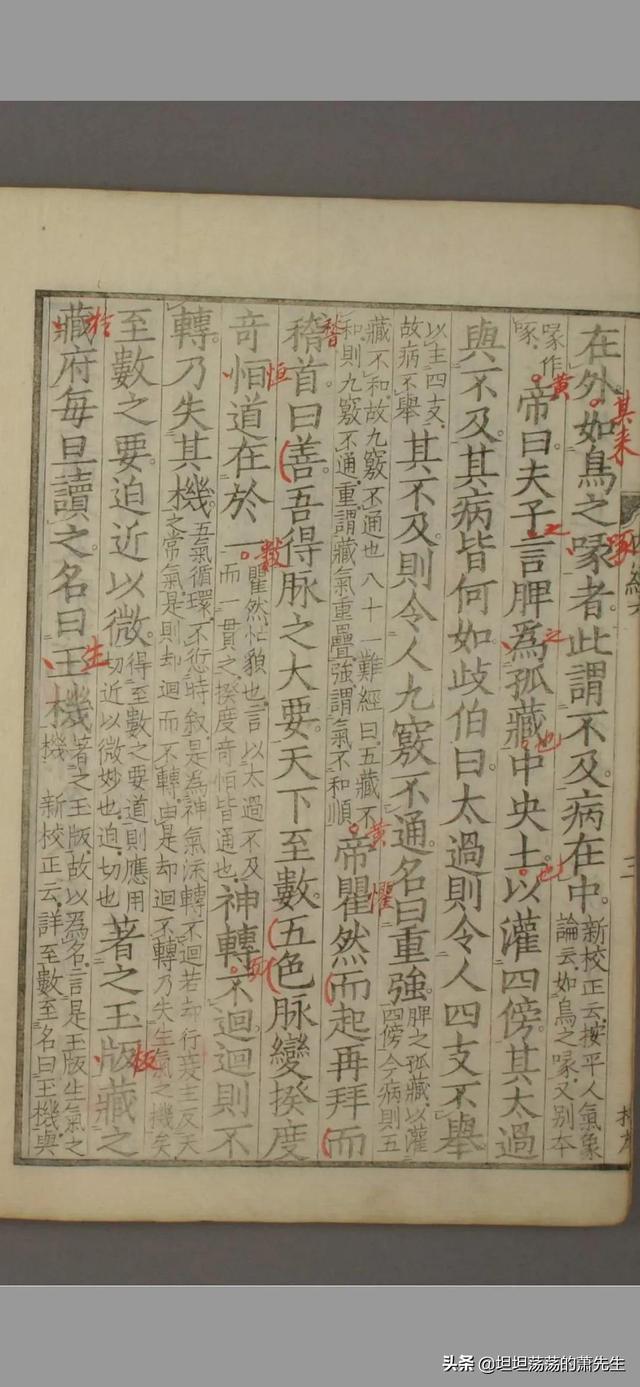 在外如鳥之喙者此謂不及病在中新校正云按平人氣象
論云如鳥之喙又别本
喙作
啄帝曰夫子言脾爲孤藏中央土以灌四傍其太過
與不及其病皆何如歧伯曰太過則令人四支不舉
以主四支
故病不舉其不及則令人九竅不通名曰重強脾之孤藏以灌
四傍今病則五
藏不和故九竅不通也八十一難經曰五藏不
和則九竅不通重謂藏氣重疊強謂氣不和順帝瞿然而起再拜而
稽首曰善吾得脉之大要天下至數五色脉變揆度
奇恒道在於一瞿然忙貌也言以太過不及
而一貫之揆度奇恒皆通也神轉不迴迴則不
轉乃失其機五氣循環不愆時叙是為神氣流轉不迴若却行衰王反天
之常氣是則却迴而不轉由是却迴不轉乃失生氣之機矣
至數之要迫近以微得至數之要道則應用
切近以微妙也迫切也著之玉版藏之
藏府每旦讀之名曰王機著之王版故以為名言是王版生氣之
機 新校正云詳至數至名曰王機與
其来
啄
黄
之
之
也
也
黄
懼
稽
恒
數
而
板
於
生
三
头条 @坦坦荡荡的萧先生